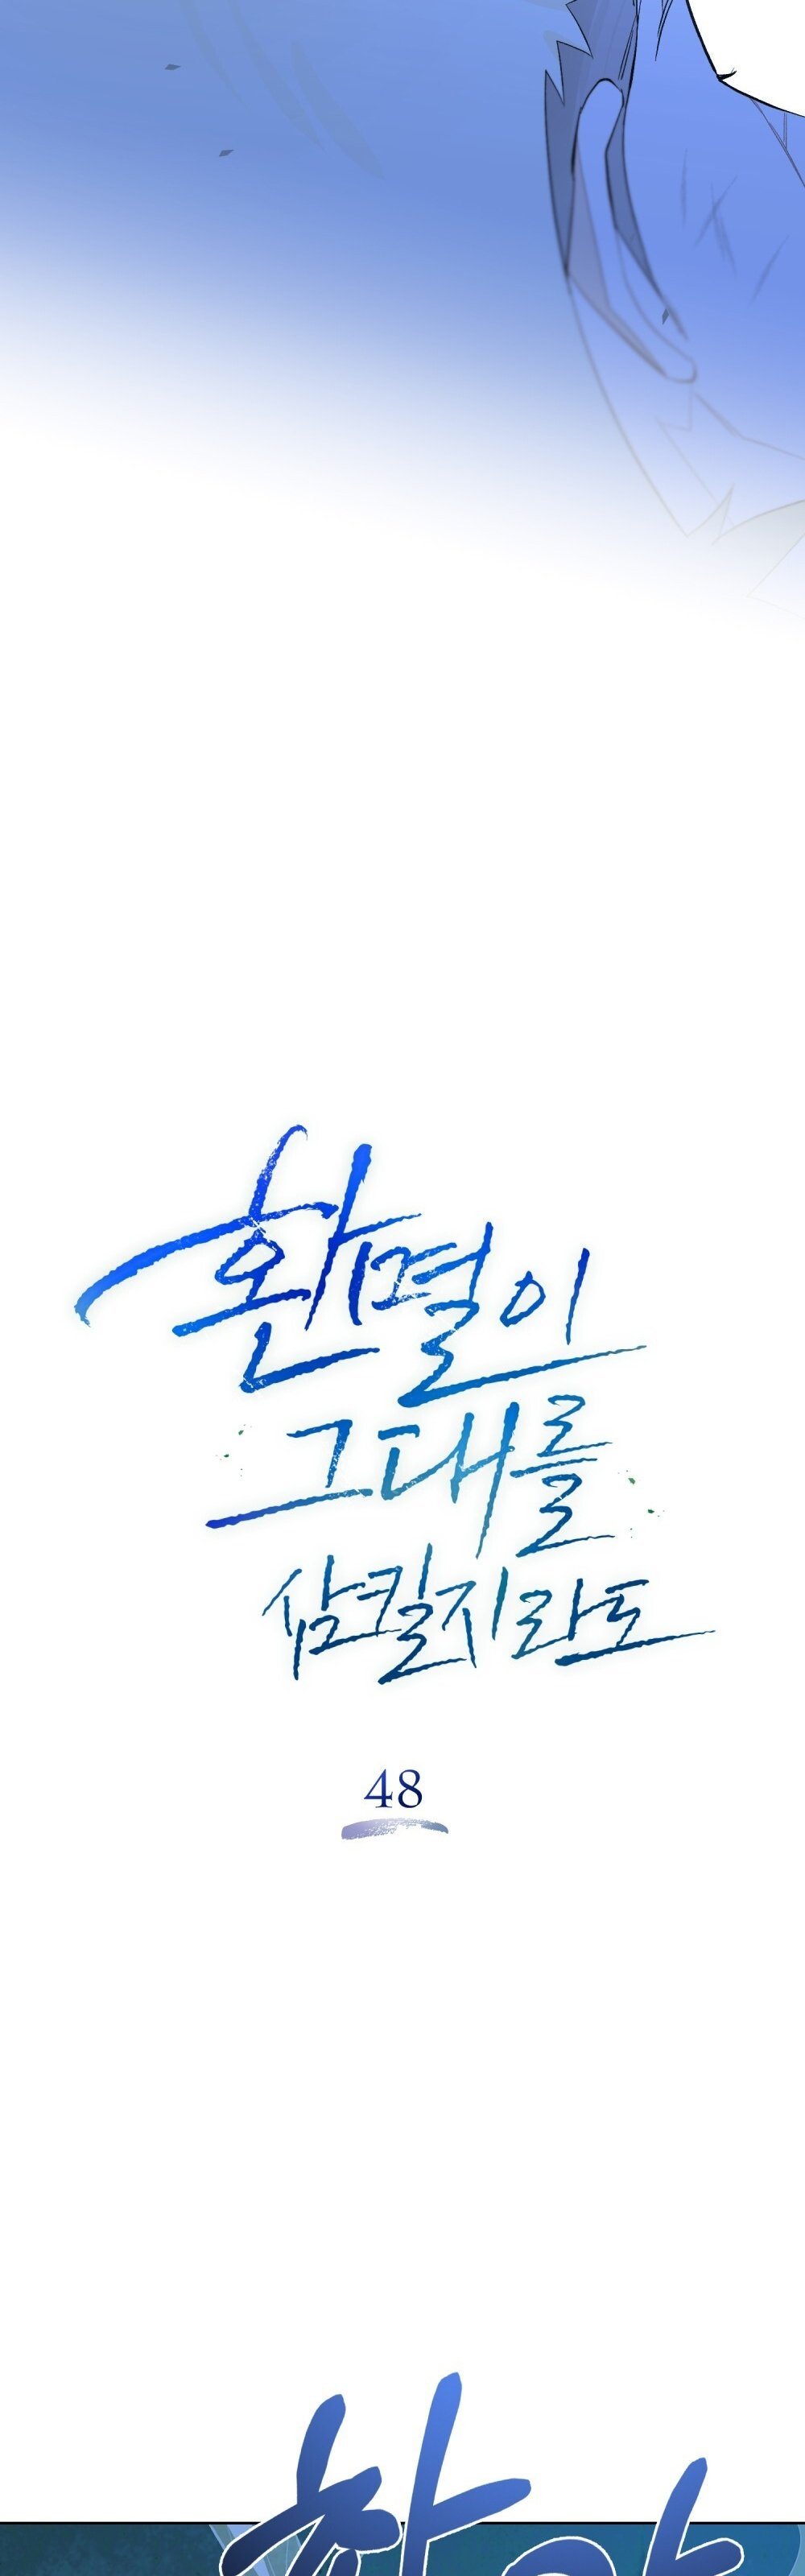 환멸이
그대를
삼킬지라도
48